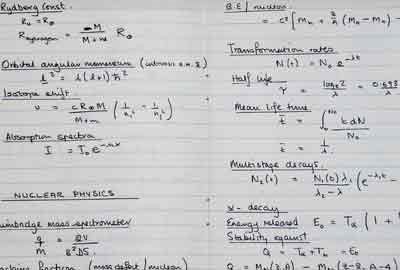 Rydberg Const.
R∞ = R∞
R Hydrogen = M / (M + m) R∞
Orbital angular momentum
l² = l(l+1) ħ²
Isotope shift.
υ = cR∞M / (M+m) (1/n₁² − 1/n₂²)
Absorption spectra
I = I₀ e^-nx
NUCLEAR PHYSICS
Bainbridge mass spectrometer
q/m = 2V / B²DS
fraction (mass defect / nucleon)
B.E / nucleon
= c² [Mn + Z/A (MH − Mn) −
Transformation rates
N(t) = N₀ e^-λt
Half life
τ = loge2 / λ = 0.693
Mean life time
t̄ = ∫ t dN / N₀
t̄ = 1/λ
Multistage decays.
N₂(t) = N₁(0) λ₁ / (λ₂ − λ) (e^-λ₁t −
α - decay
Energy released E₀ = Tα (1 +
Stability against
Q = Tα + Th = E₀
Q = MN(Z,A) − MN(Z-2, A-4)